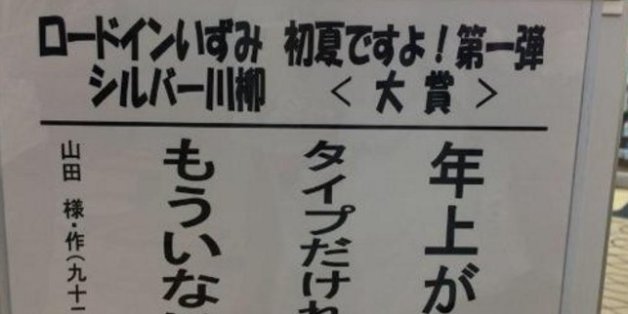 ロードインいずみ 初夏ですよ!第一弾
シルバー川柳 < 大賞 >
年上が
タイプだけれ
もういな
山田 様・作(九十二